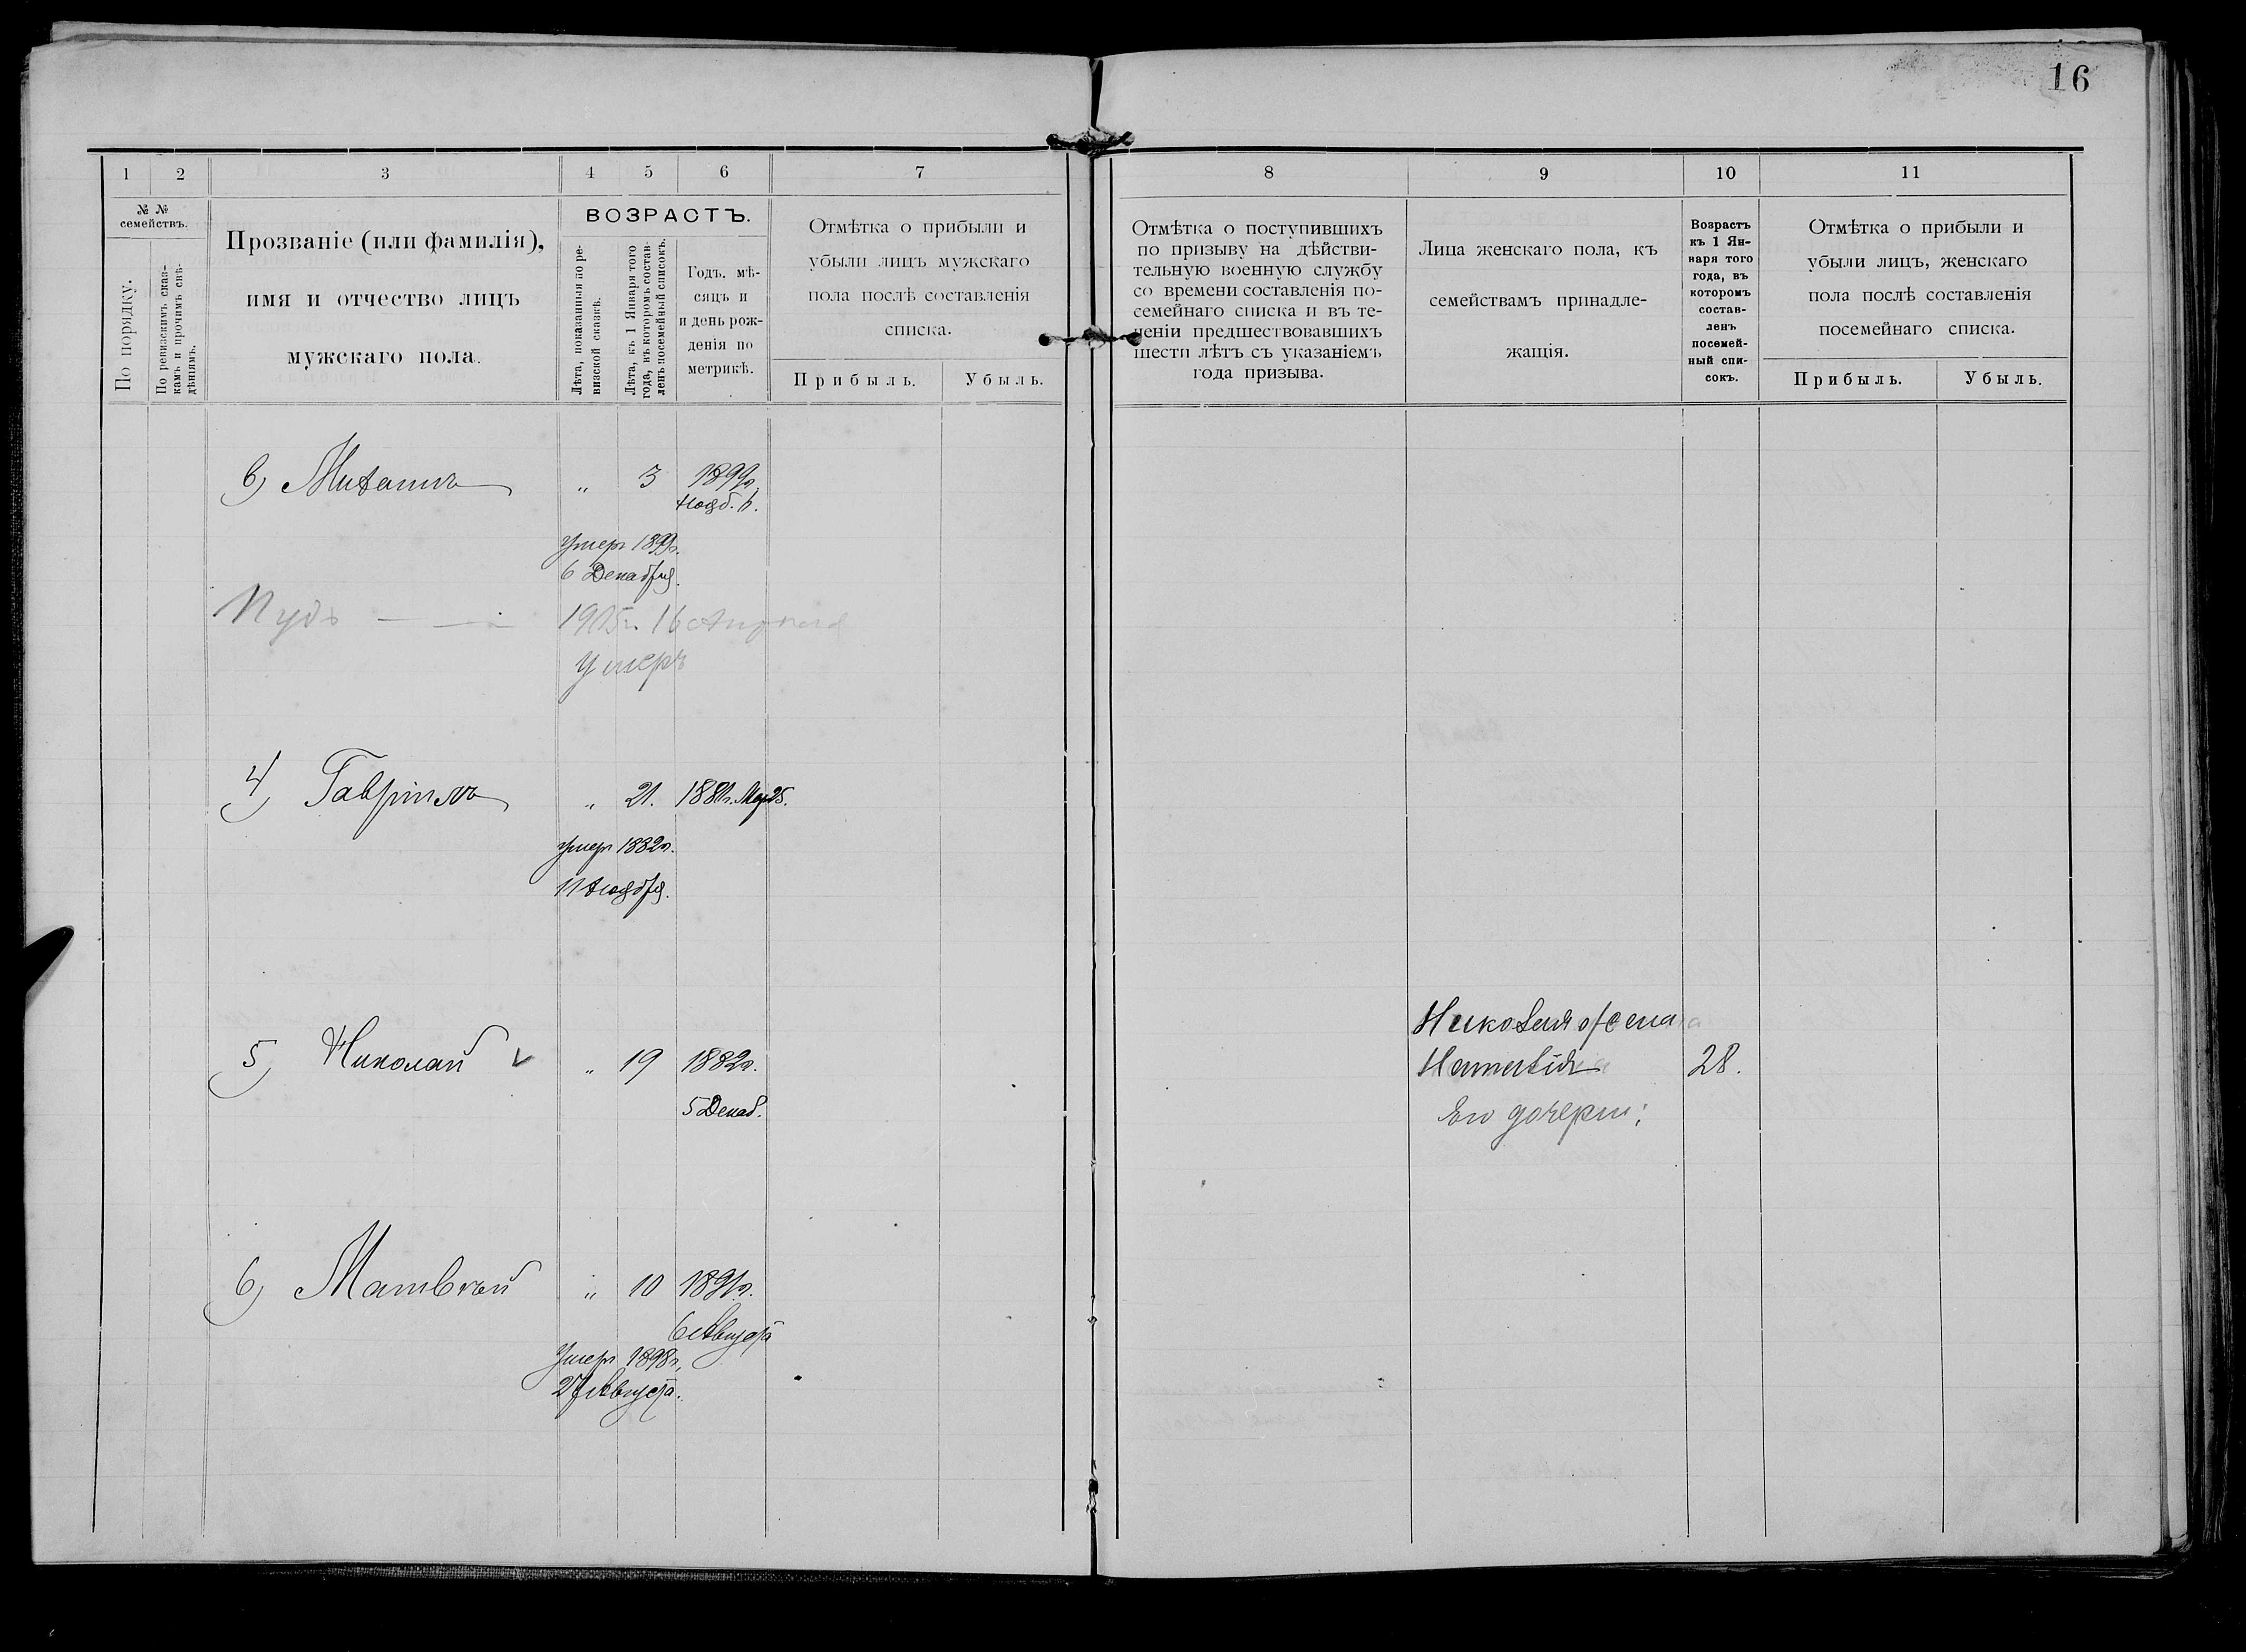 16
1 2 3 4 5 6 7 8 9 10 11
№ № семействъ.
По порядку.
По ревизскимъ сказкамъ и прочимъ свѣдѣніямъ.
Прозваніе (или фамилія),
имя и отчество лицъ
мужскаго пола.
ВОЗРАСТЪ.
Лѣта, показанныя по ревизской сказкѣ.
Лѣта, къ 1 Января того года, въ которомъ составленъ посемейный списокъ.
Годъ, мѣ-
сяцъ и
и день рож-
денія по
метрикѣ.
Отмѣтка о прибыли и
убыли лицъ мужскаго
пола послѣ составленія
списка.
Прибыль. Убыль.
Отмѣтка о поступившихъ
по призыву на дѣйстви-
тельную военную службу
со времени составленія по-
семейнаго списка и въ те-
ченіи предшествовавшихъ
шести лѣтъ съ указаніемъ
года призыва.
Лица женскаго пола, къ
семействамъ принадле-
жащія.
Возрастъ
къ 1 Ян-
варя того
года, въ
которомъ
состав-
ленъ
посемей-
ный спи-
сокъ.
Отмѣтка о прибыли и
убыли лицъ, женскаго
пола послѣ составленія
посемейнаго списка.
Прибыль. Убыль.
в) Михаилъ „ 3 1899г.
Нояб. 6.
умеръ 1899г.
6 Декабря.
Пудъ 1905г. 16
умеръ
4) Гавріилъ „ 21. 1881г. Мар. 25.
умеръ 1882г.
11 Ноября.
5) Николай „ 19 1882г.
5 Декаб.
Николая жена
Наталія 28.
Его дочери:
6) Матвѣй „ 10 1891г.
6 Августа
Умеръ 1898г.
27 Августа.